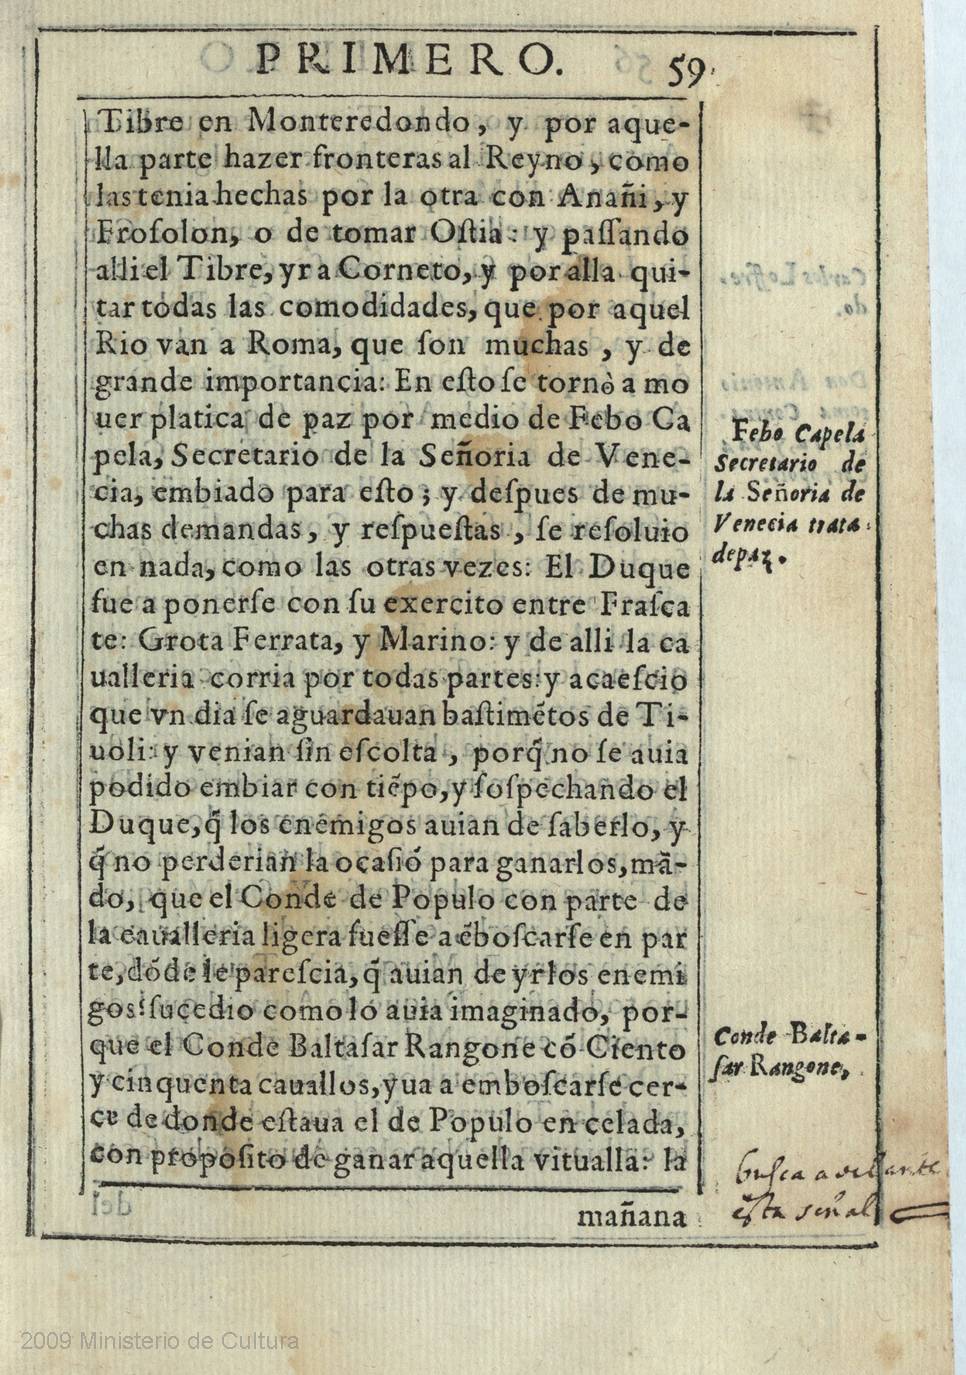 PRIMERO. 59
Tibre en Monteredondo, y por aque-
lla parte hazer fronteras al Reyno, como
las tenia hechas por la otra con Anañi, y
Frosolon, o de tomar Oſtia: y paſſando
alli el Tibre, yr a Corneto, y por alla qui-
tar todas las comodidades, que por aquel
Rio van a Roma, que ſon muchas, y de
grande importancia: En eſto ſe tornò a mo
uer platica de paz por medio de Febo Ca
pela, Secretario de la Señoria de Vene-
cia, embiado para eſto; y deſpues de mu-
chas demandas, y reſpueſtas, ſe reſoluio
en nada, como las otras vezes: El Duque
fue a ponerſe con ſu exercito entre Fraſca
te: Grota Ferrata, y Marino: y de alli la ca
ualleria corria por todas partes: y acaeſcio
que vn dia ſe aguardauan baſtimẽtos de Ti-
uoli: y venian ſin eſcolta, porq̃ no ſe auia
podido embiar con tiẽpo, y ſoſpechando el
Duque, q̃ los enemigos auian de ſaberlo, y
q̃ no perderian la ocaſiõ para ganarlos, mã-
do, que el Conde de Populo con parte de
la caualleria ligera fueſſe a ẽboſcarſe en par
te, dõde le pareſcia, q̃ auian de yr los enemi
gos: ſucedio como lo auia imaginado, por-
que el Conde Baltaſar Rangone cõ Ciento
y cinquenta cauallos, yua a emboſcarſe cer-
ce de donde eſtaua el de Populo en celada,
con propoſito de ganar aquella vitualla: la
mañana
Febo Capela
Secretario de
la Señoria de
Venecia trata
de paz.
Conde Balta-
ſar Rangone,
busca adelante
esta señal
2009 Ministerio de Cultura